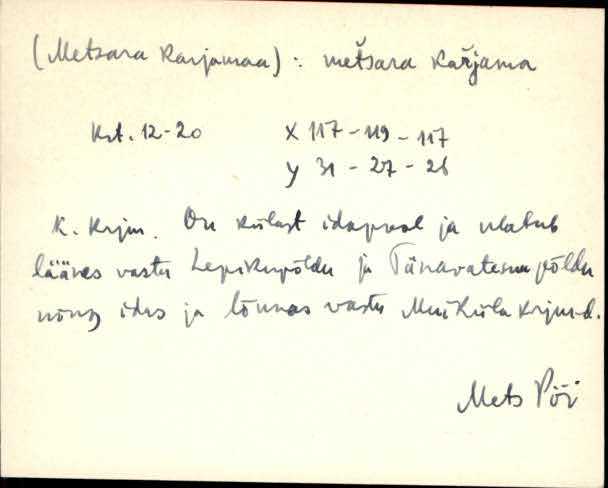 (Metsara Karjamaa): metšara kařjama
Krt. 12-20 X 117 - 119 - 117
y 31 - 27 - 26
K. krjm. On külast idapool ja ulatub
lääves vastu Lepikupõldu ja Tänavatesuupõldu
nõng idas ja lõunas vastu Muiküla krjm-d.
Mets Pöi